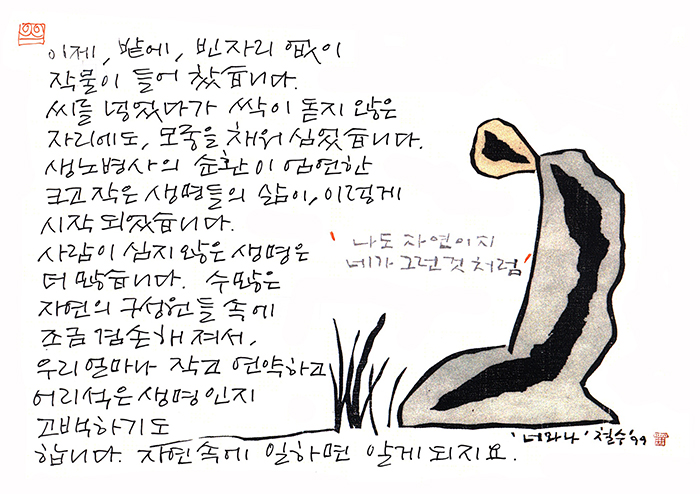 이제, 밭에, 빈자리 없이
작물이 들어 찼습니다.
씨를 넣었다가 싹이 돋지 않은
자리에도, 모종을 채워 심었습니다.
생노병사의 순환이 엄연한
크고 작은 생명들의 삶이, 이렇게
시작 되었습니다.
사람이 심지 않은 생명은
더 많습니다. 수많은
자연의 구성원들 속에
조금 겸손해 져서,
우리 얼마나 작고 연약하고
어리석은 생명인지
고백하기도
합니다. 자연속에 일하면 알게 되지요.
'나도 자연이지
네가 그런것 처럼'
'너와나' 철수 '99